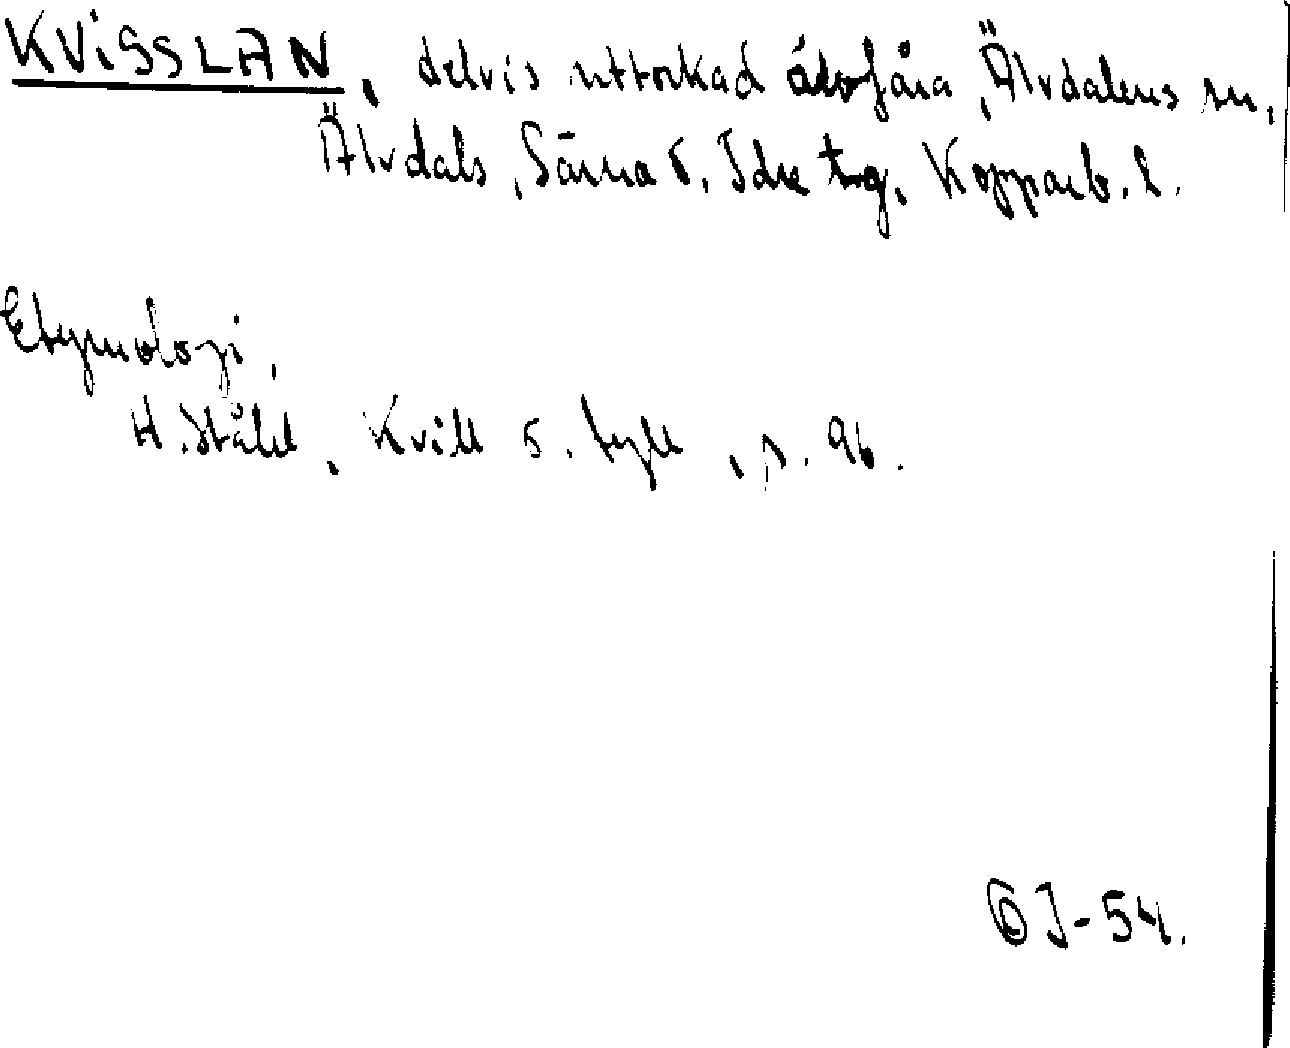 KVISSLAN, delvis uttorkad åtofåra, Älvdalens sn,
Älvdals, Särna o. Idre tg. Kopparb. l.
Etymologi,
H. Ståhl, Kvill o. tyll, s. 96.
ÖJ-54.